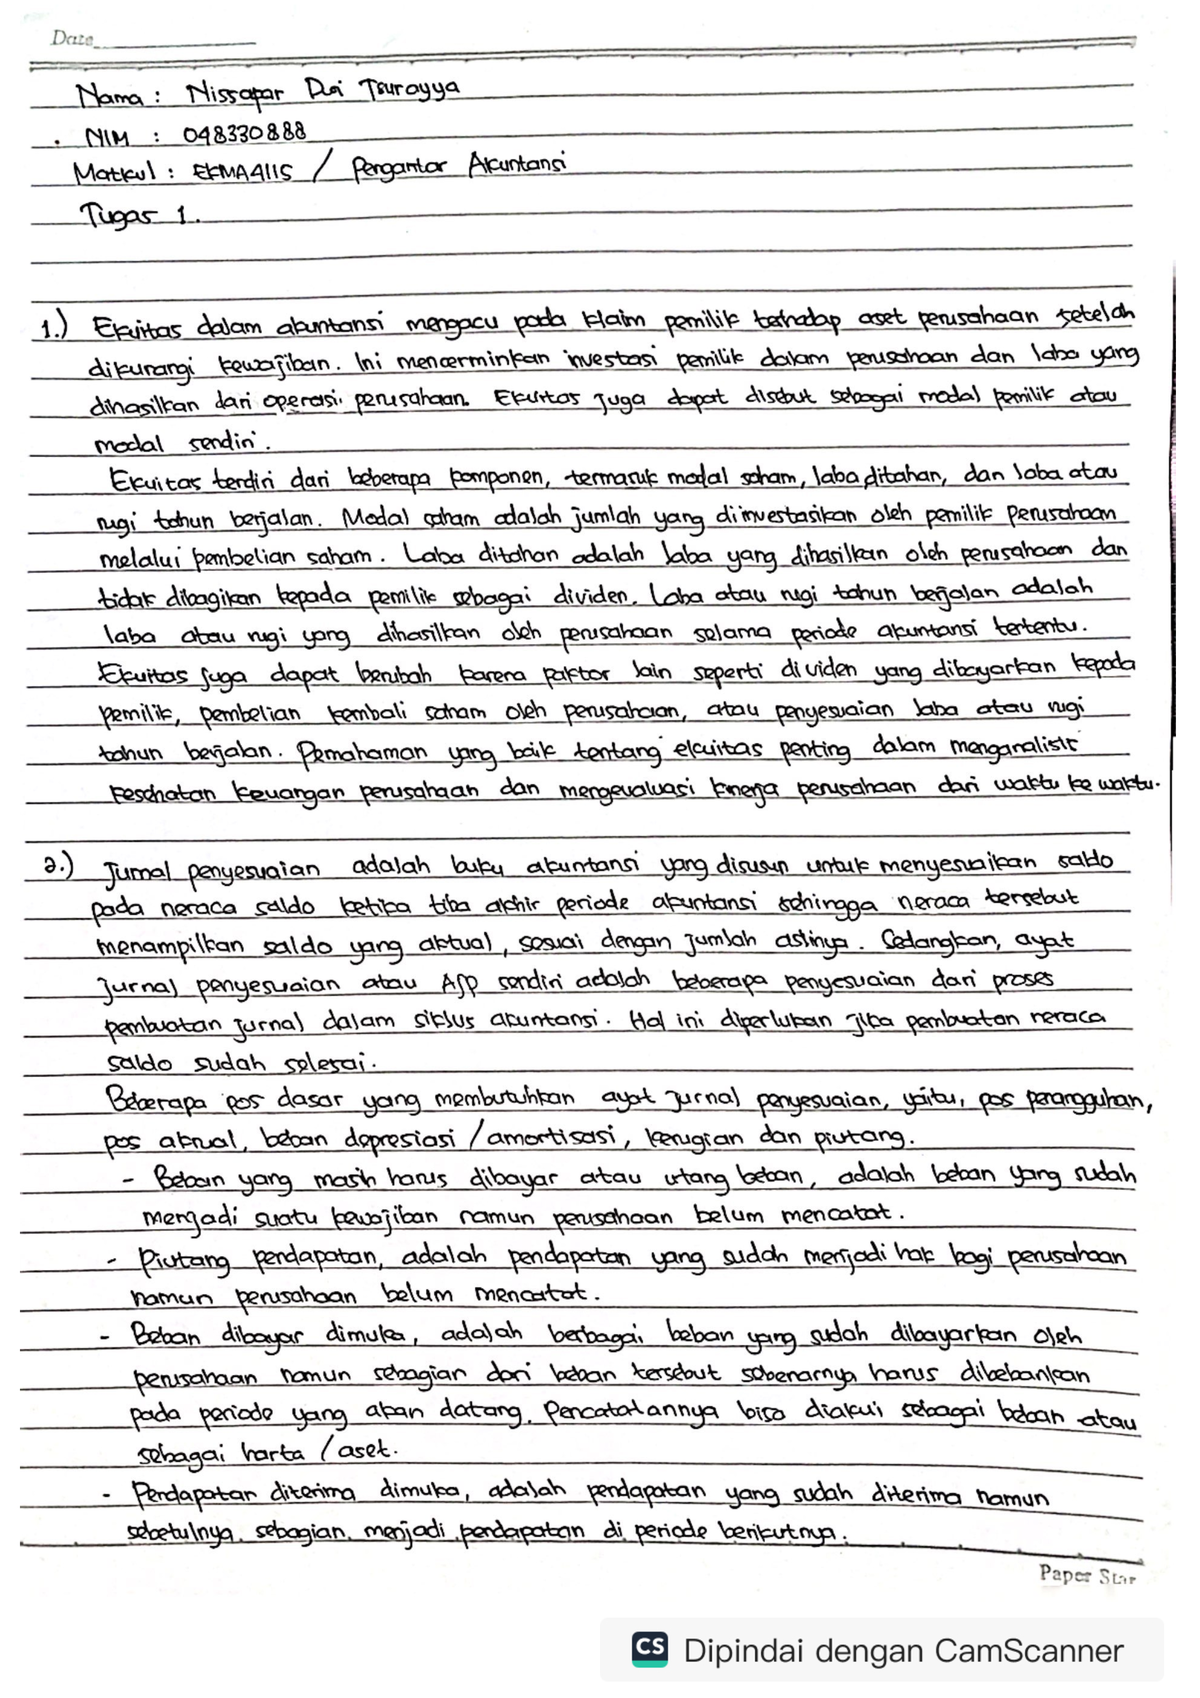 Date
Nama : Nissapar Dwi Tsurayya
. NIM : 048330888
Matkul : EKMA4115 / Pengantar Akuntansi
Tugas 1.
1.) Ekuitas dalam akuntansi mengacu pada klaim pemilik terhadap aset perusahaan setelah
dikurangi kewajiban. Ini mencerminkan investasi pemilik dalam perusahaan dan laba yang
dihasilkan dari operasi perusahaan. Ekuitas juga dapat disebut sebagai modal pemilik atau
modal sendiri.
Ekuitas terdiri dari beberapa komponen, termasuk modal saham, laba ditahan, dan laba atau
rugi tahun berjalan. Modal saham adalah jumlah yang diinvestasikan oleh pemilik perusahaan
melalui pembelian saham. Laba ditahan adalah laba yang dihasilkan oleh perusahaan dan
tidak dibagikan kepada pemilik sebagai dividen. Laba atau rugi tahun berjalan adalah
laba atau rugi yang dihasilkan oleh perusahaan selama periode akuntansi tertentu.
Ekuitas juga dapat berubah karena paktor lain seperti dividen yang dibayarkan kepada
pemilik, pembelian kembali saham oleh perusahaan, atau penyesuaian laba atau rugi
tahun berjalan. Pemahaman yang baik tentang ekuitas penting dalam menganalisis
kesehatan keuangan perusahaan dan mengevaluasi kinerja perusahaan dari waktu ke waktu.
2.) Jurnal penyesuaian adalah buku akuntansi yang disusun untuk menyesuaikan saldo
pada neraca saldo ketika tiba akhir periode akuntansi sehingga neraca tersebut
menampilkan saldo yang aktual, sesuai dengan jumlah aslinya. Sedangkan, ayat
jurnal penyesuaian atau AJP sendiri adalah beberapa penyesuaian dari proses
pembuatan jurnal dalam siklus akuntansi. Hal ini diperlukan jika pembuatan neraca
saldo sudah selesai.
Beberapa pos dasar yang membutuhkan ayat jurnal penyesuaian, yaitu, pos penangguhan,
pos akrual, beban depresiasi / amortisasi, kerugian dan piutang.
- Beban yang masih harus dibayar atau utang beban, adalah beban yang sudah
menjadi suatu kewajiban namun perusahaan belum mencatat.
- Piutang pendapatan, adalah pendapatan yang sudah menjadi hak bagi perusahaan
namun perusahaan belum mencatat.
- Beban dibayar dimuka, adalah berbagai beban yang sudah dibayarkan oleh
perusahaan namun sebagian dari beban tersebut sebenarnya harus dibebankan
pada periode yang akan datang. Pencatatannya bisa diakui sebagai beban atau
sebagai harta / aset.
- Pendapatan diterima dimuka, adalah pendapatan yang sudah diterima namun
sebetulnya sebagian menjadi pendapatan di periode berikutnya.
Paper Star
CS Dipindai dengan CamScanner